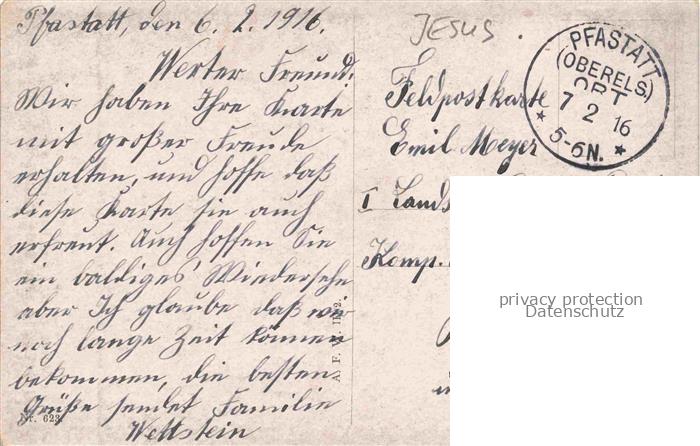 Pfastatt, den 6. 2. 1916.
Werter Freund.
Wir haben Ihre Karte
mit großer Freude
erhalten, und hoffe daß
diese Karte sie auch
erfreut. Auch hoffen Sie
ein baldiges Wiedersehn
aber Ich glaube daß wir
noch lange Zeit können
bekommen, die besten
Grüße sendet Familie
Wettstein
Nr. 623.
A. F. II
JESUS.
PFASTATT
(OBERELS.)
ORT
7 2 16
* 5-6N. *
Feldpostkarte
Emil Meyer
I Lands
Komp.
privacy protection
Datenschutz